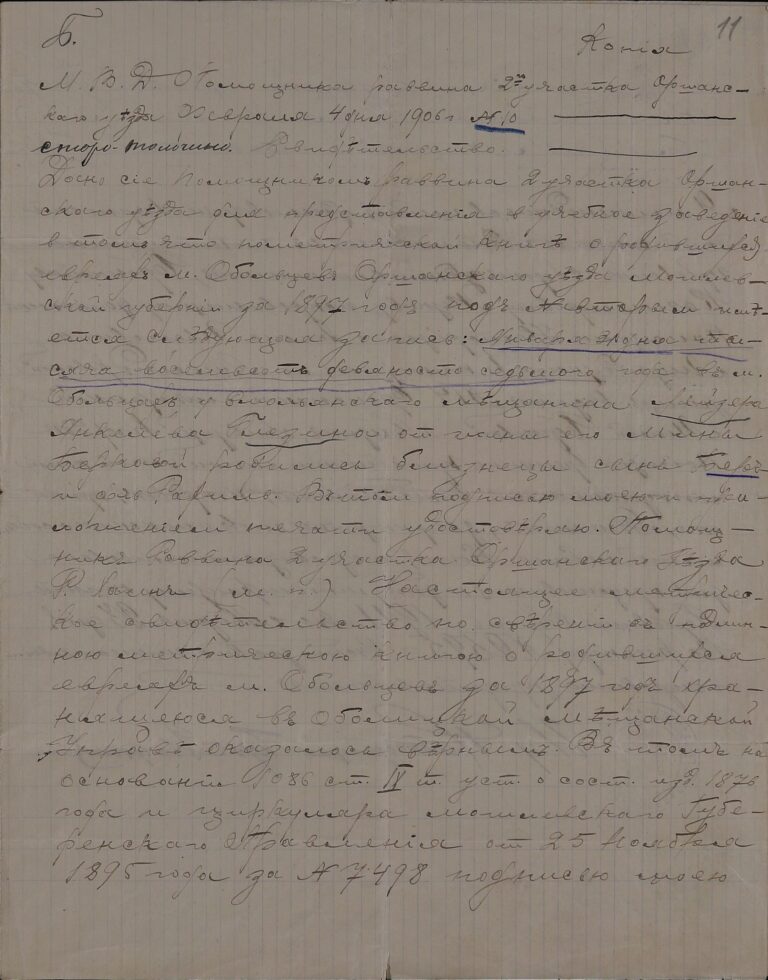 11
Б.
Копія
М. В. Д. Помощника раввина 2го участка Оршанс-
каго уѣзда Февраля 4 дня 1906 г № 10
старо-толочино. Свидѣтельство.
Дано сіе Помощникомъ раввина 2 участка Оршан-
скаго уѣзда для представленія в учебное заведеніе
в томъ что по метрической книгѣ о родившихся
евреяхъ м. Обольцевъ Оршанскаго уѣзда Могилев-
ской губерніи за 1897 годъ подъ № вторым имѣ-
ется слѣдующая запись: Января дня тыся-
сяча восемьсотъ девяносто седьмого года въ м.
Обольцахъ у Смольянскаго мѣщанина Лейзера
Янкелева Глезина от жены его Мины
Берковой родились близнецы сынъ Беръ
и дочь Рахиль. Въ томъ подписью моею и при-
ложеніем печати удостовѣряю. Помощ-
никъ Раввина 2 участка Оршанскаго уѣзда
Р. Хасинъ (м. п.) Настоящее метричес-
кое свидѣтельство по свѣреніи съ подлин-
ною метрическою книгою о родившихся
евреяхъ м. Обольцевъ за 1897 годъ хра-
нящеюся въ Обольцкой Мѣщанской
Управѣ оказалось вѣрнымъ. Въ томъ на
основаніи 1086 ст. IX т. уст. о сост. изд. 1876
года и циркуляра Могилевскаго Губе-
рнскаго Правленія от 25 Ноября
1895 года за № 7498 подписью моею